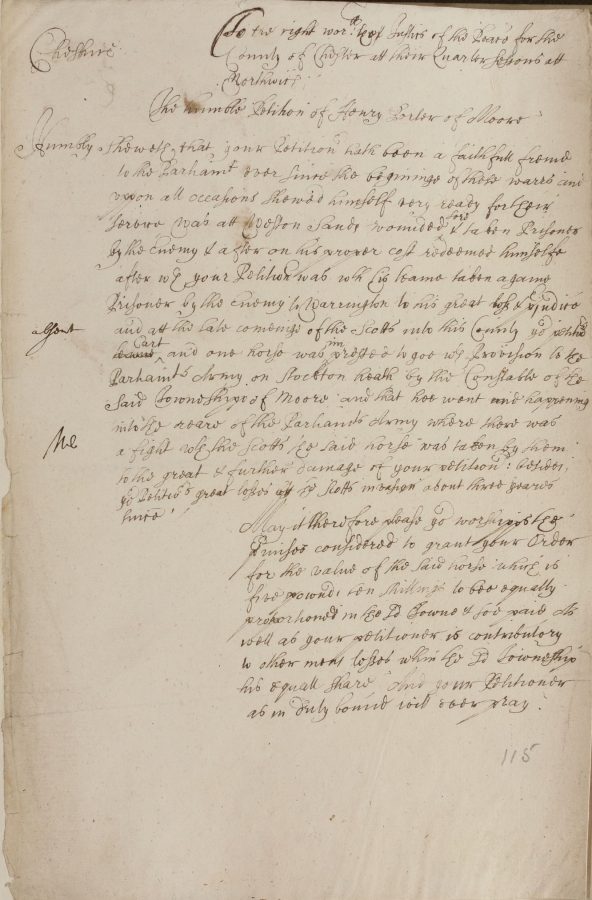 Cheshire
To the right wor:ll the Justics of the Peace for the
County of Chester att their Quarter sessions att
Northwich
The humble Petition of Henry of Moore
Humbly sheweth, that your Petitionr hath been a faithfull freind
to the Parliamt ever since the begininge of these warrs and
uppon all occasions shewed himself very ready for their
service was att Weston Sands wounded & taken Prisoner
by the enemy & after on his proper cost redeemed himselfe
after wch your Petitionr was wth his teame taken againe
Prisoner by the enemy to Warrington to his great losse & prudice
and att the late comeinge of the Scotts into this County yor petitior
absent
cart and one horse was impressed to goe wth Provision to the
Parliamts Army on Stockton heath by the Constable of the
said Towneshipp of Moore and that hee went and happening
into the reare of the Parliamts Army where there was
a fight wth the Scotts the said horse was taken by them
Me
to the great & further damage of your petitionr: besides,
yor Petitiors great losses by the Scotts invasion about three yeares
since
May it therefore please yor worshipps the
p'misses considered to grant your Order
for the value of the said horse which is
five pownd, ten shillings to bee equally
proportioned in the sd Towne & soe paid As
well as your petitioner is contributory
to other mens losses wthin the sd Towneshipp
his equall share And your Petitioner
as in duty bound will ever pray.
115